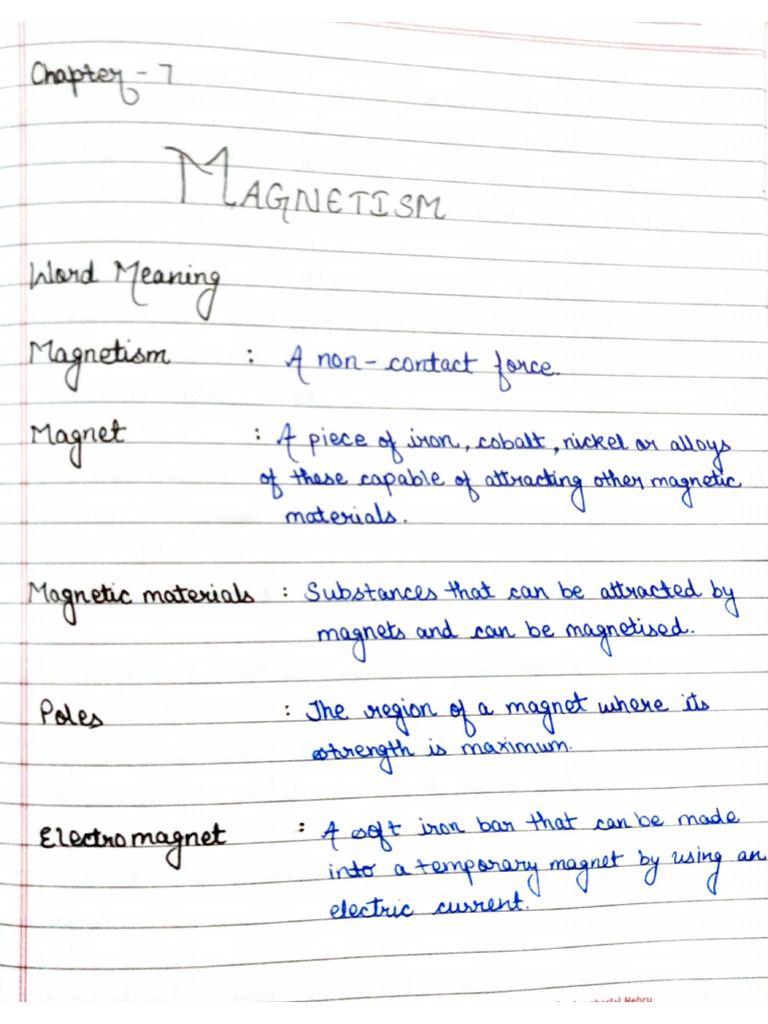 Chapter - 7
MAGNETISM
Word Meaning
Magnetism : A non-contact force.
Magnet : A piece of iron, cobalt, nickel or alloys
of these capable of attracting other magnetic
materials.
Magnetic materials : Substances that can be attracted by
magnets and can be magnetised.
Poles : The region of a magnet where its
strength is maximum.
Electromagnet : A soft iron bar that can be made
into a temporary magnet by using an
electric current.
Nehru